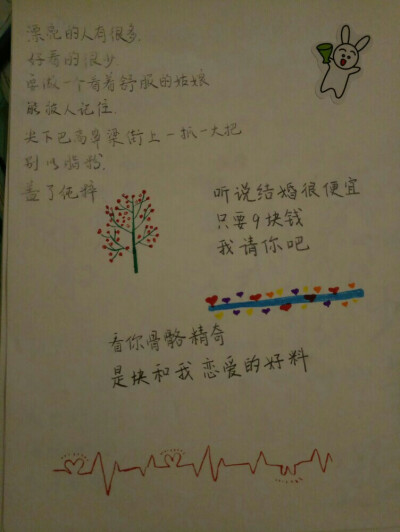 漂亮的人有很多.
好看的很少
要做一个看着舒服的姑娘
能被人记住.
尖下巴高鼻梁街上一抓一大把
别以脂粉.
盖了纯粹
听说结婚很便宜
只要9块钱
我请你吧
看你骨骼精奇
是块和我恋爱的好料